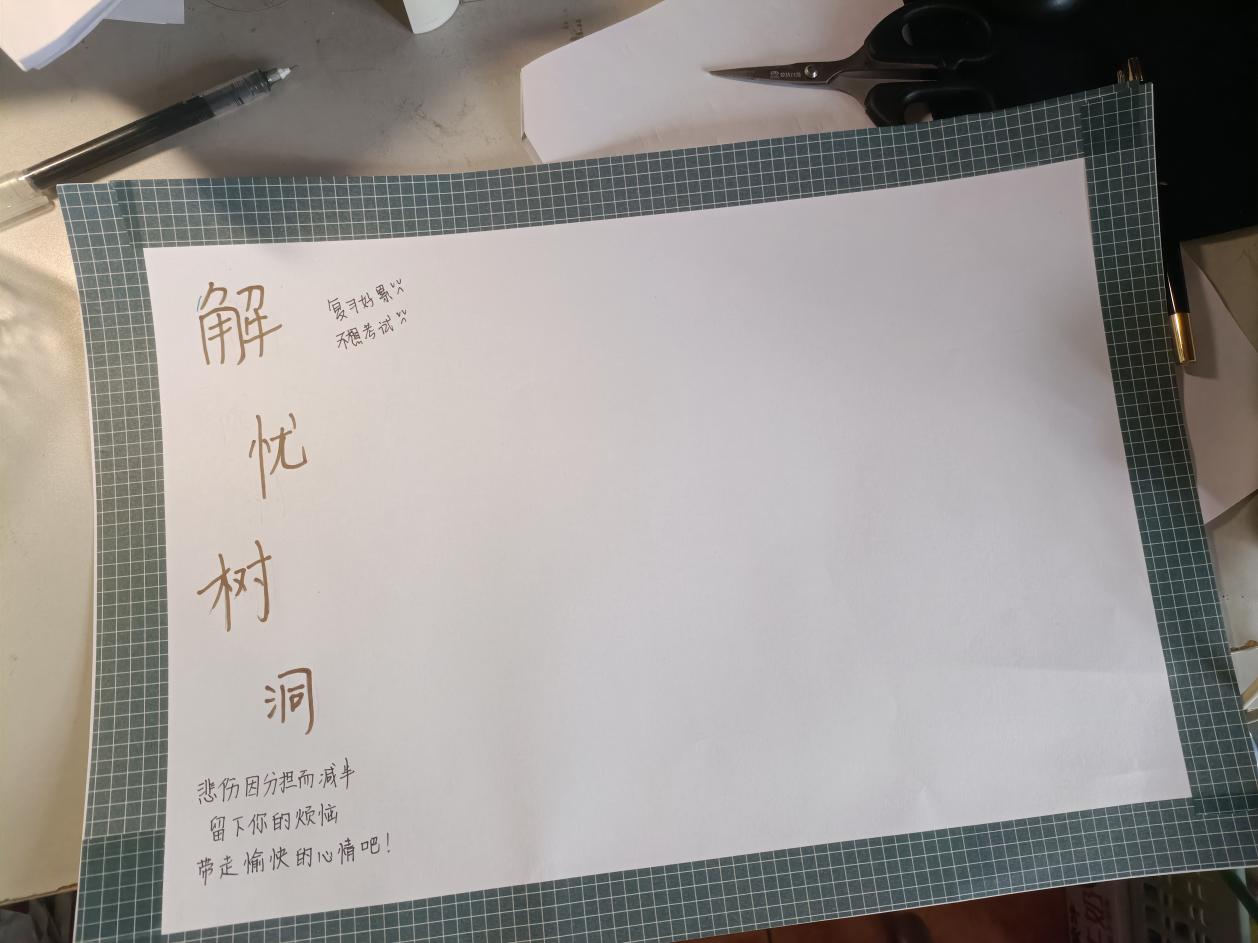 解
忧
树
洞
复习好累
不想考试
悲伤因分担而减半
留下你的烦恼
带走愉快的心情吧！